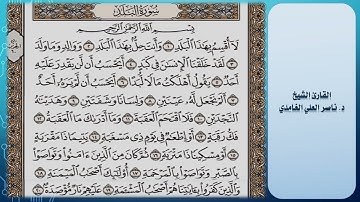 سُورَةُ البَلَدِ
بِسْمِ اللَّهِ الرَّحْمَٰنِ الرَّحِيمِ
لَا أُقْسِمُ بِهَٰذَا الْبَلَدِ ١ وَأَنتَ حِلٌّ بِهَٰذَا الْبَلَدِ ٢ وَوَالِدٍ وَمَا وَلَدَ
٣ لَقَدْ خَلَقْنَا الْإِنسَانَ فِي كَبَدٍ ٤ أَيَحْسَبُ أَن لَّن يَقْدِرَ عَلَيْهِ
أَحَدٌ ٥ يَقُولُ أَهْلَكْتُ مَالًا لُّبَدًا ٦ أَيَحْسَبُ أَن لَّمْ يَرَهُ أَحَدٌ
٧ أَلَمْ نَجْعَل لَّهُ عَيْنَيْنِ ٨ وَلِسَانًا وَشَفَتَيْنِ ٩ وَهَدَيْنَاهُ
النَّجْدَيْنِ ١٠ فَلَا اقْتَحَمَ الْعَقَبَةَ ١١ وَمَا أَدْرَاكَ مَا الْعَقَبَةُ ١٢
فَكُّ رَقَبَةٍ ١٣ أَوْ إِطْعَامٌ فِي يَوْمٍ ذِي مَسْغَبَةٍ ١٤ يَتِيمًا ذَا مَقْرَبَةٍ
١٥ أَوْ مِسْكِينًا ذَا مَتْرَبَةٍ ١٦ ثُمَّ كَانَ مِنَ الَّذِينَ آمَنُوا وَتَوَاصَوْا
بِالصَّبْرِ وَتَوَاصَوْا بِالْمَرْحَمَةِ ١٧ أُولَٰئِكَ أَصْحَابُ الْمَيْمَنَةِ ١٨
وَالَّذِينَ كَفَرُوا بِآيَاتِنَا هُمْ أَصْحَابُ الْمَشْأَمَةِ ١٩ عَلَيْهِمْ نَارٌ مُّؤْصَدَةٌ ٢٠
القارئ الشيخ
د. ناصر العلي الغامدي